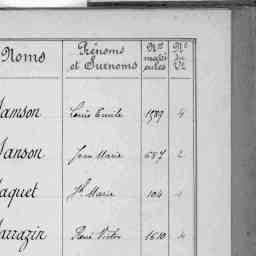 Noms Prénoms et Surnoms Nos matricules No du Vt
Samson Louis Emile 1589 4
Sanson Jean Marie 587 2
aquet Jh Marie 104
arrazin René Victor 1610 4